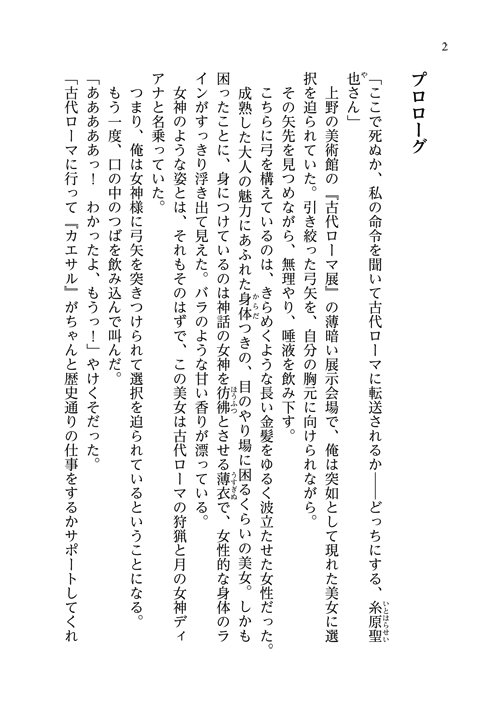 2
プロローグ
「ここで死ぬか、私の命令を聞いて古代ローマに転送されるか――どっちにする、糸原聖
也さん」
上野の美術館の『古代ローマ展』の薄暗い展示会場で、俺は突如として現れた美女に選
択を迫られていた。引き絞った弓矢を、自分の胸元に向けられながら。
その矢先を見つめながら、無理やり、唾液を飲み下す。
こちらに弓を構えているのは、きらめくような長い金髪をゆるく波立たせた女性だった。
成熟した大人の魅力にあふれた身体つきの、目のやり場に困るくらいの美女。しかも
困ったことに、身につけているのは神話の女神を彷彿とさせる薄衣で、女性的な身体のラ
インがすっきり浮き出て見えた。バラのような甘い香りが漂っている。
女神のような姿とは、それもそのはずで、この美女は古代ローマの狩猟と月の女神ディ
アナと名乗っていた。
つまり、俺は女神様に弓矢を突きつけられて選択を迫られているということになる。
もう一度、口の中のつばを飲み込んで叫んだ。
「あああああっ！　わかったよ、もうっ！」やけくそだった。
「古代ローマに行って『カエサル』がちゃんと歴史通りの仕事をするかサポートしてくれ